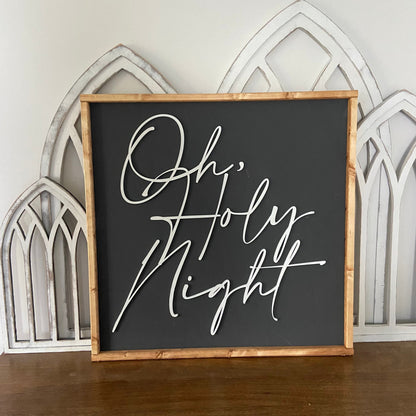 Oh,
Holy
Night